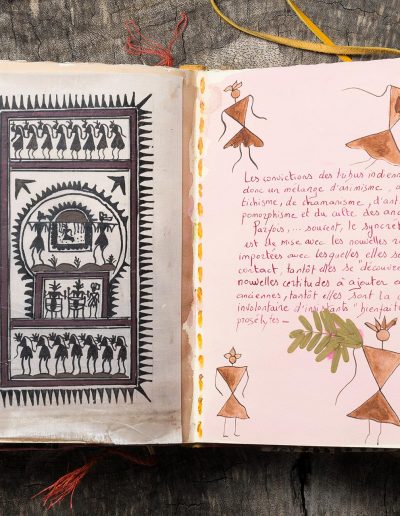 Les convictions des tribus indiennes
donc un mélange d'animisme, 
tichisme, de chamanisme, d'ant
pomorphisme et du culte des anc
Parfois,... souvent, le syncré
est de mise avec les nouvelles r
importées avec lesquelles elles se
contact, tantôt elles se "découvre
nouvelles certitudes à ajouter
anciennes, tantôt elles sont la
involontaire d'insistants "bienfait
prosélytes -